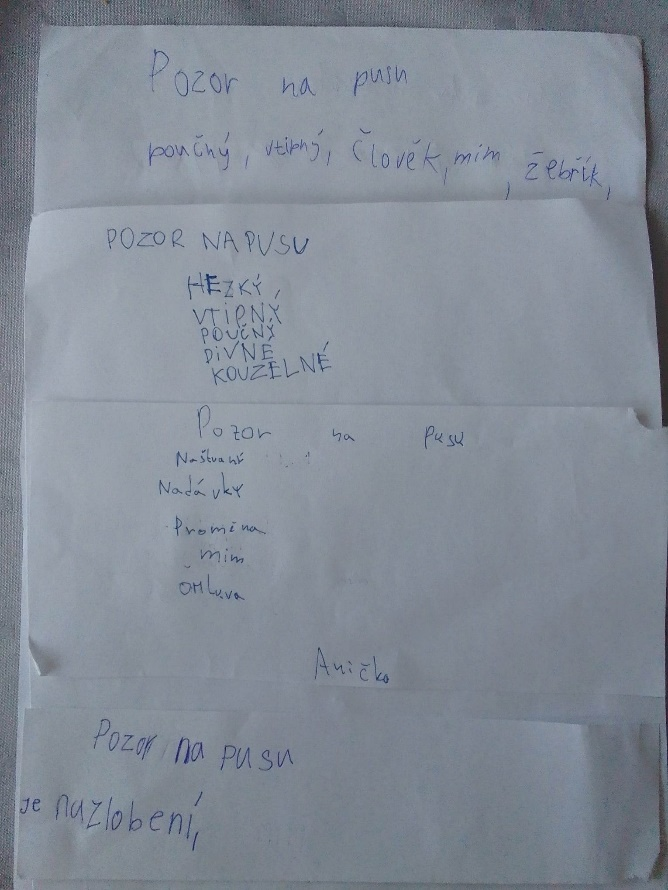 Pozor na pusu
poučný, vtipný, Člověk, mim, žebřík,
POZOR NA PUSU
HEZKÝ
VTIPNÝ
POUČNÝ
DIVNÉ
KOUZELNÉ
Pozor na Pusu
Naštvaný
Nadávky
Proměna
mim
Omluva
Anička
Pozor na pusu
je nazlobení,